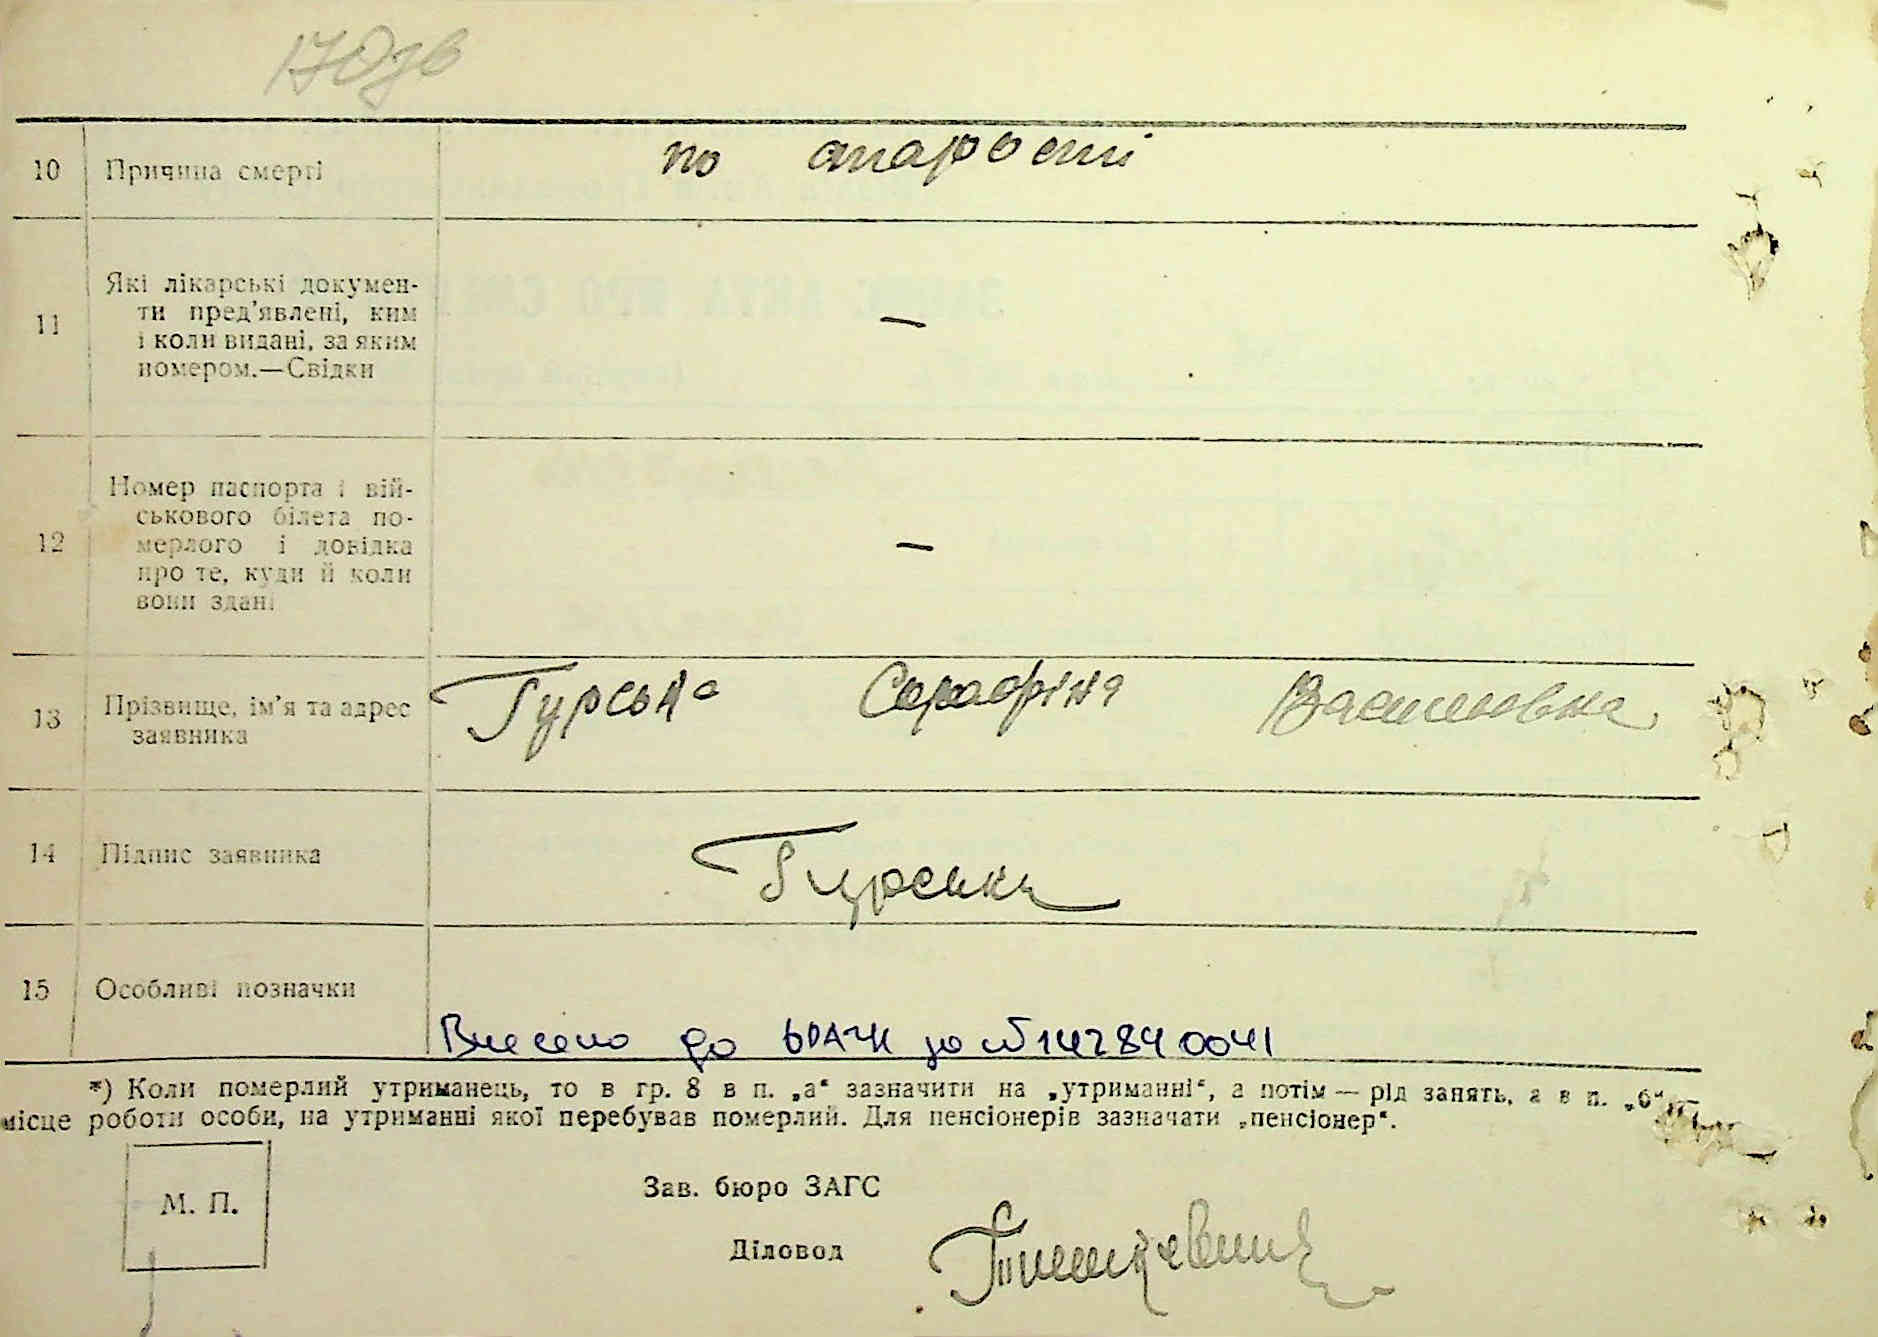 170зв
10 Причина смерті по старості
11 Які лікарські докумен-
ти пред'явлені, ким
і коли видані, за яким
номером.—Свідки
—
12 Номер паспорта і вій-
ськового білета по-
мерлого і довідка
про те, куди й коли
вони здані
—
13 Прізвище, ім'я та адрес
заявника
Гурська Серафіна Василовна
14 Підпис заявника Гурська
15 Особливі позначки
Внесено до ДРАЦС за № 142840041
*) Коли померлий утриманець, то в гр. 8 в п. „а“ зазначити на „утриманні“, а потім — рід занять, а в п. „б“ —
місце роботи особи, на утриманні якої перебував померлий. Для пенсіонерів зазначати „пенсіонер“.
М. П.
Зав. бюро ЗАГС
Діловод